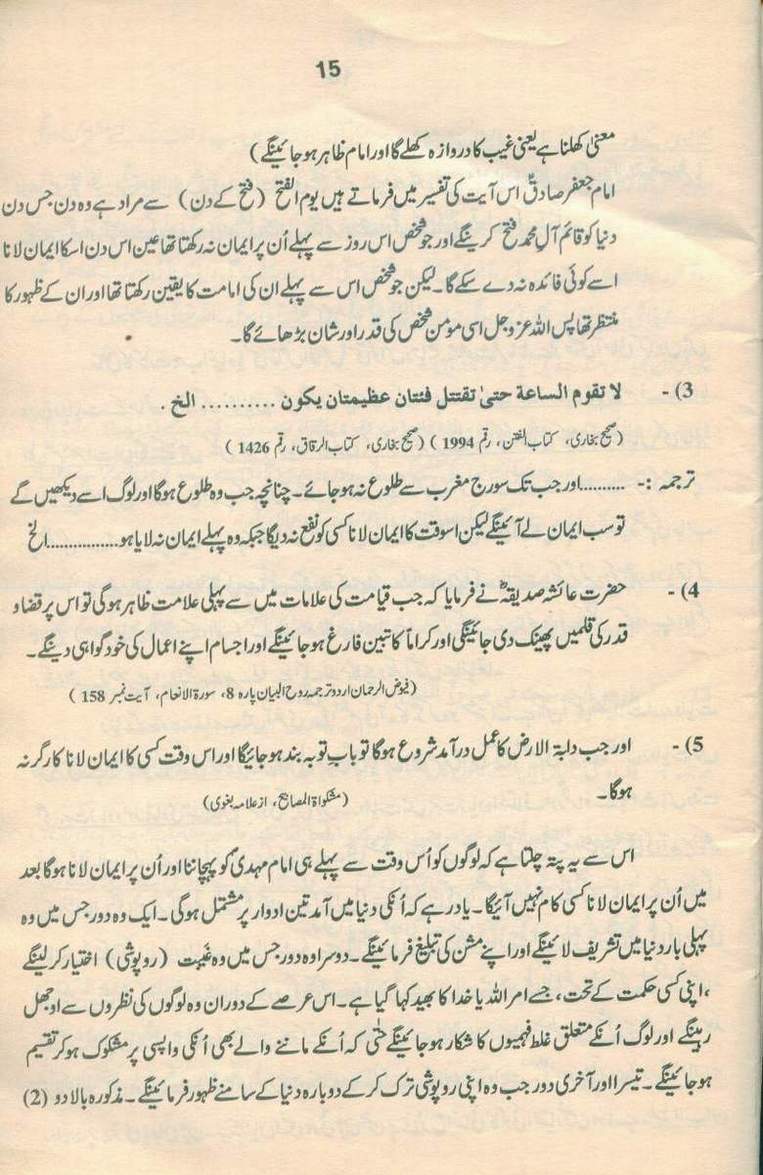 15
معنیٰ کھلنا ہے یعنی غیب کا دروازہ کھلے گا اور امام ظاہر ہو جائینگے)
امام جعفر صادقؑ اس آیت کی تفسیر میں فرماتے ہیں یوم الفتح (فتح کے دن) سے مراد ہے وہ دن جس دن
دنیا کو قائم آلِ محمدؐ فتح کرینگے اور جو شخص اس روز سے پہلے اُن پر ایمان نہ رکھتا تھا عین اس دن اسکا ایمان لانا
اسے کوئی فائدہ نہ دے سکے گا۔ لیکن جو شخص اس سے پہلے ان کی امامت کا یقین رکھتا تھا اور ان کے ظہور کا
منتظر تھا پس اللہ عزوجل اسی مومن شخص کی قدر اور شان بڑھائے گا۔
3)- لا تقوم الساعة حتیٰ تقتتل فئتان عظیمتان یکون .......... الخ .
(صحیح بخاری، کتاب الفتن، رقم 1994) (صحیح بخاری، کتاب الرقاق، رقم 1426)
ترجمہ :- .........اور جب تک سورج مغرب سے طلوع نہ ہو جائے۔ چنانچہ جب وہ طلوع ہوگا اور لوگ اسے دیکھیں گے
تو سب ایمان لے آئینگے لیکن اسوقت کا ایمان لانا کسی کو نفع نہ دیگا جبکہ وہ پہلے ایمان نہ لایا ہو................الخ
4)- حضرت عائشہ صدیقہؓ نے فرمایا کہ جب قیامت کی علامات میں سے پہلی علامت ظاہر ہوگی تو اس پر قضا و
قدر کی قلمیں پھینک دی جائینگی اور کراماً کاتبین فارغ ہو جائینگے اور اجسام اپنے اعمال کی خود گواہی دینگے۔
(فیوض الرحمان اردو ترجمہ روح البیان پارہ 8، سورۃ الانعام، آیت نمبر 158)
5)- اور جب دابۃ الارض کا عمل درآمد شروع ہوگا تو بابِ توبہ بند ہو جائیگا اور اس وقت کسی کا ایمان لانا کارگر نہ
ہوگا۔ (مشکواۃ المصابیح، از علامہ بغوی)
اس سے یہ پتہ چلتا ہے کہ لوگوں کو اُس وقت سے پہلے ہی امام مہدیؑ کو پہچاننا اور اُن پر ایمان لانا ہوگا بعد
میں اُن پر ایمان لانا کسی کام نہیں آئیگا۔ یاد رہے کہ اُنکی دنیا میں آمد تین ادوار پر مشتمل ہوگی۔ ایک وہ دور جس میں وہ
پہلی بار دنیا میں تشریف لائینگے اور اپنے مشن کی تبلیغ فرمائینگے۔ دوسرا وہ دور جس میں وہ غَیبت (روپوشی) اختیار کر لینگے
،اپنی کسی حکمت کے تحت، جسے امر اللہ یا خدا کا بھید کہا گیا ہے۔ اس عرصے کے دوران وہ لوگوں کی نظروں سے اوجھل
رہینگے اور لوگ اُنکے متعلق غلط فہمیوں کا شکار ہو جائینگے حتیٰ کہ اُنکے ماننے والے بھی اُنکی واپسی پر مشکوک ہو کر تقسیم
ہو جائینگے۔ تیسرا اور آخری دور جب وہ اپنی روپوشی ترک کر کے دوبارہ دنیا کے سامنے ظہور فرمائینگے۔ مذکورہ بالا دو (2)